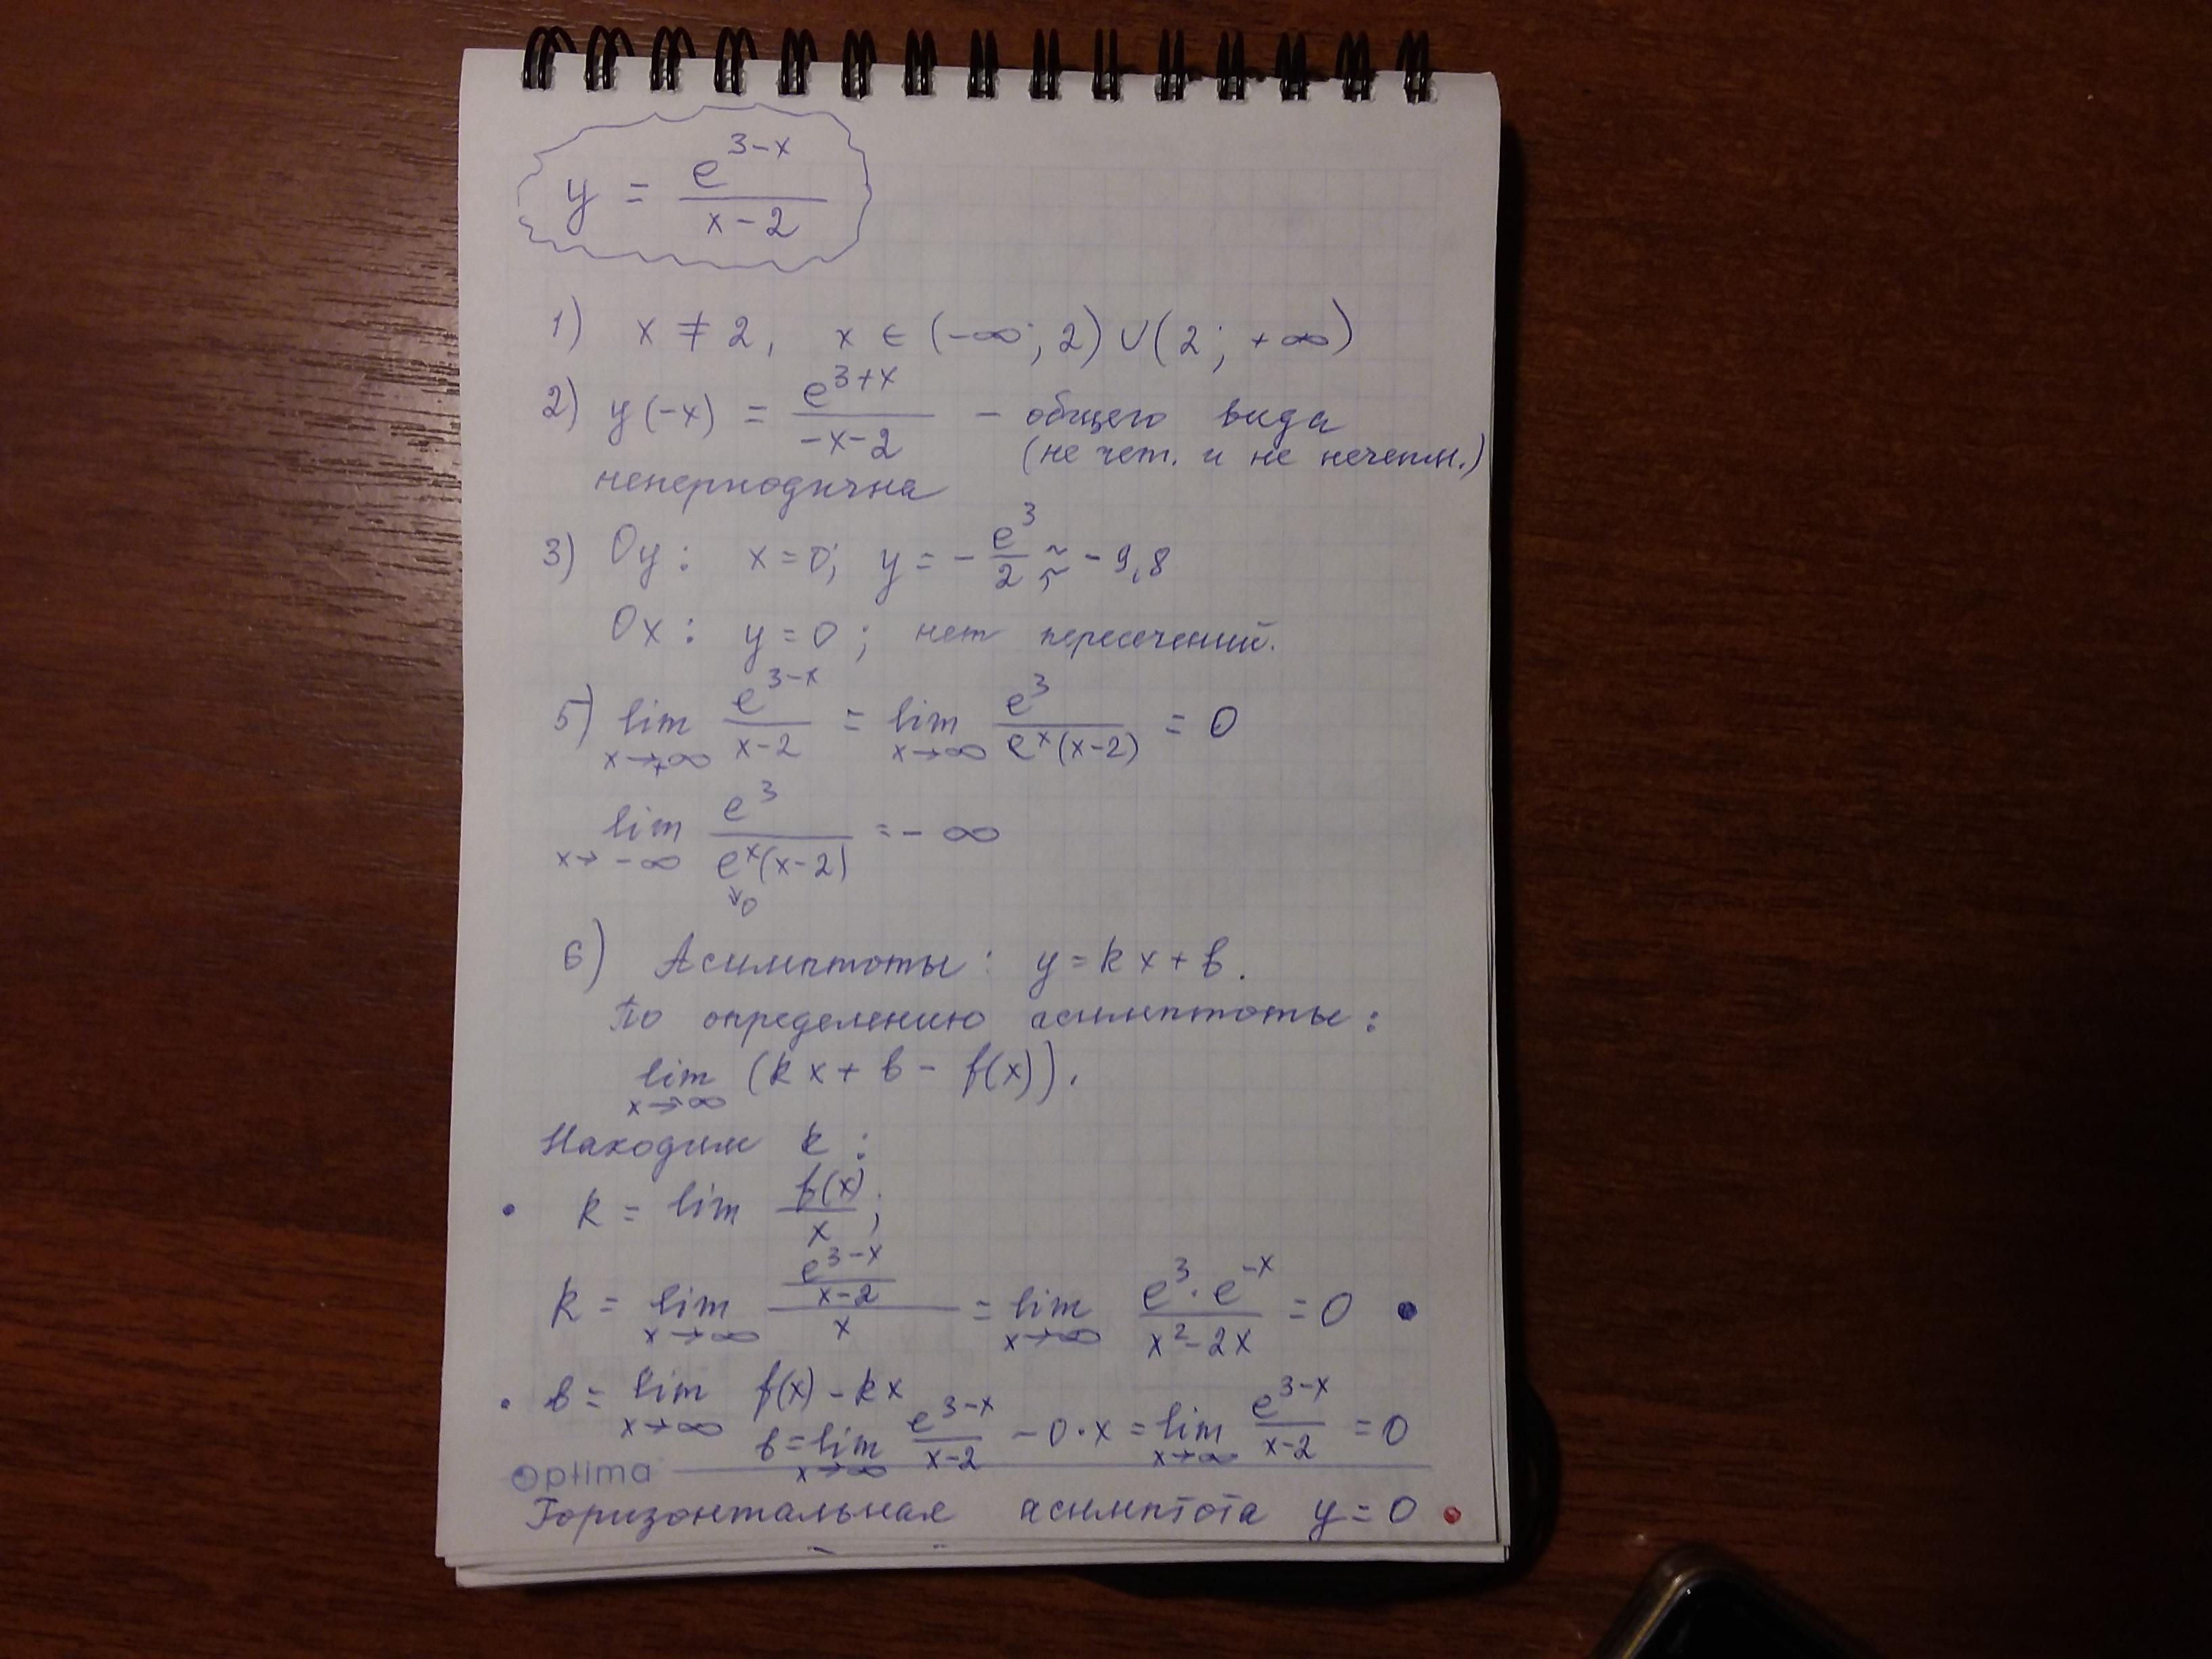 y = e^(3-x) / (x-2)
1) x ≠ 2, x ∈ (-∞; 2) ∪ (2; +∞)
2) y(-x) = e^(3+x) / (-x-2) - общего вида
(не чет. и не нечетн.)
непериодична
3) Oy: x=0; y = -e^3/2 ≈ -9,8
Ox: y=0; нет пересечений.
5) lim x→+∞ e^(3-x) / (x-2) = lim x→∞ e^3 / (e^x(x-2)) = 0
lim x→-∞ e^3 / (e^x(x-2)) = -∞
↘0
6) Асимптоты: y=kx+b.
По определению асимптоты:
lim x→∞ (kx+b-f(x)).
Находим k:
• k = lim f(x)/x;
k = lim x→∞ (e^(3-x)/(x-2))/x = lim x→∞ (e^3·e^(-x))/(x^2-2x) = 0 •
• b = lim x→∞ f(x)-kx
b=lim x→∞ e^(3-x)/(x-2) - 0·x = lim x→∞ e^(3-x)/(x-2) = 0
Optima
Горизонтальная асимптота y=0